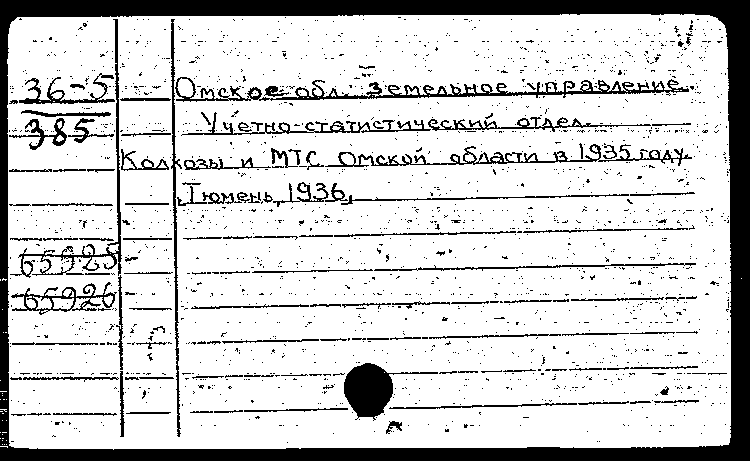 36-5 Омское обл. земельное управление.
385 Учетно-статистический отдел.
Колхозы и МТС Омской области в 1935 году.
Тюмень, 1936,
65925
65926